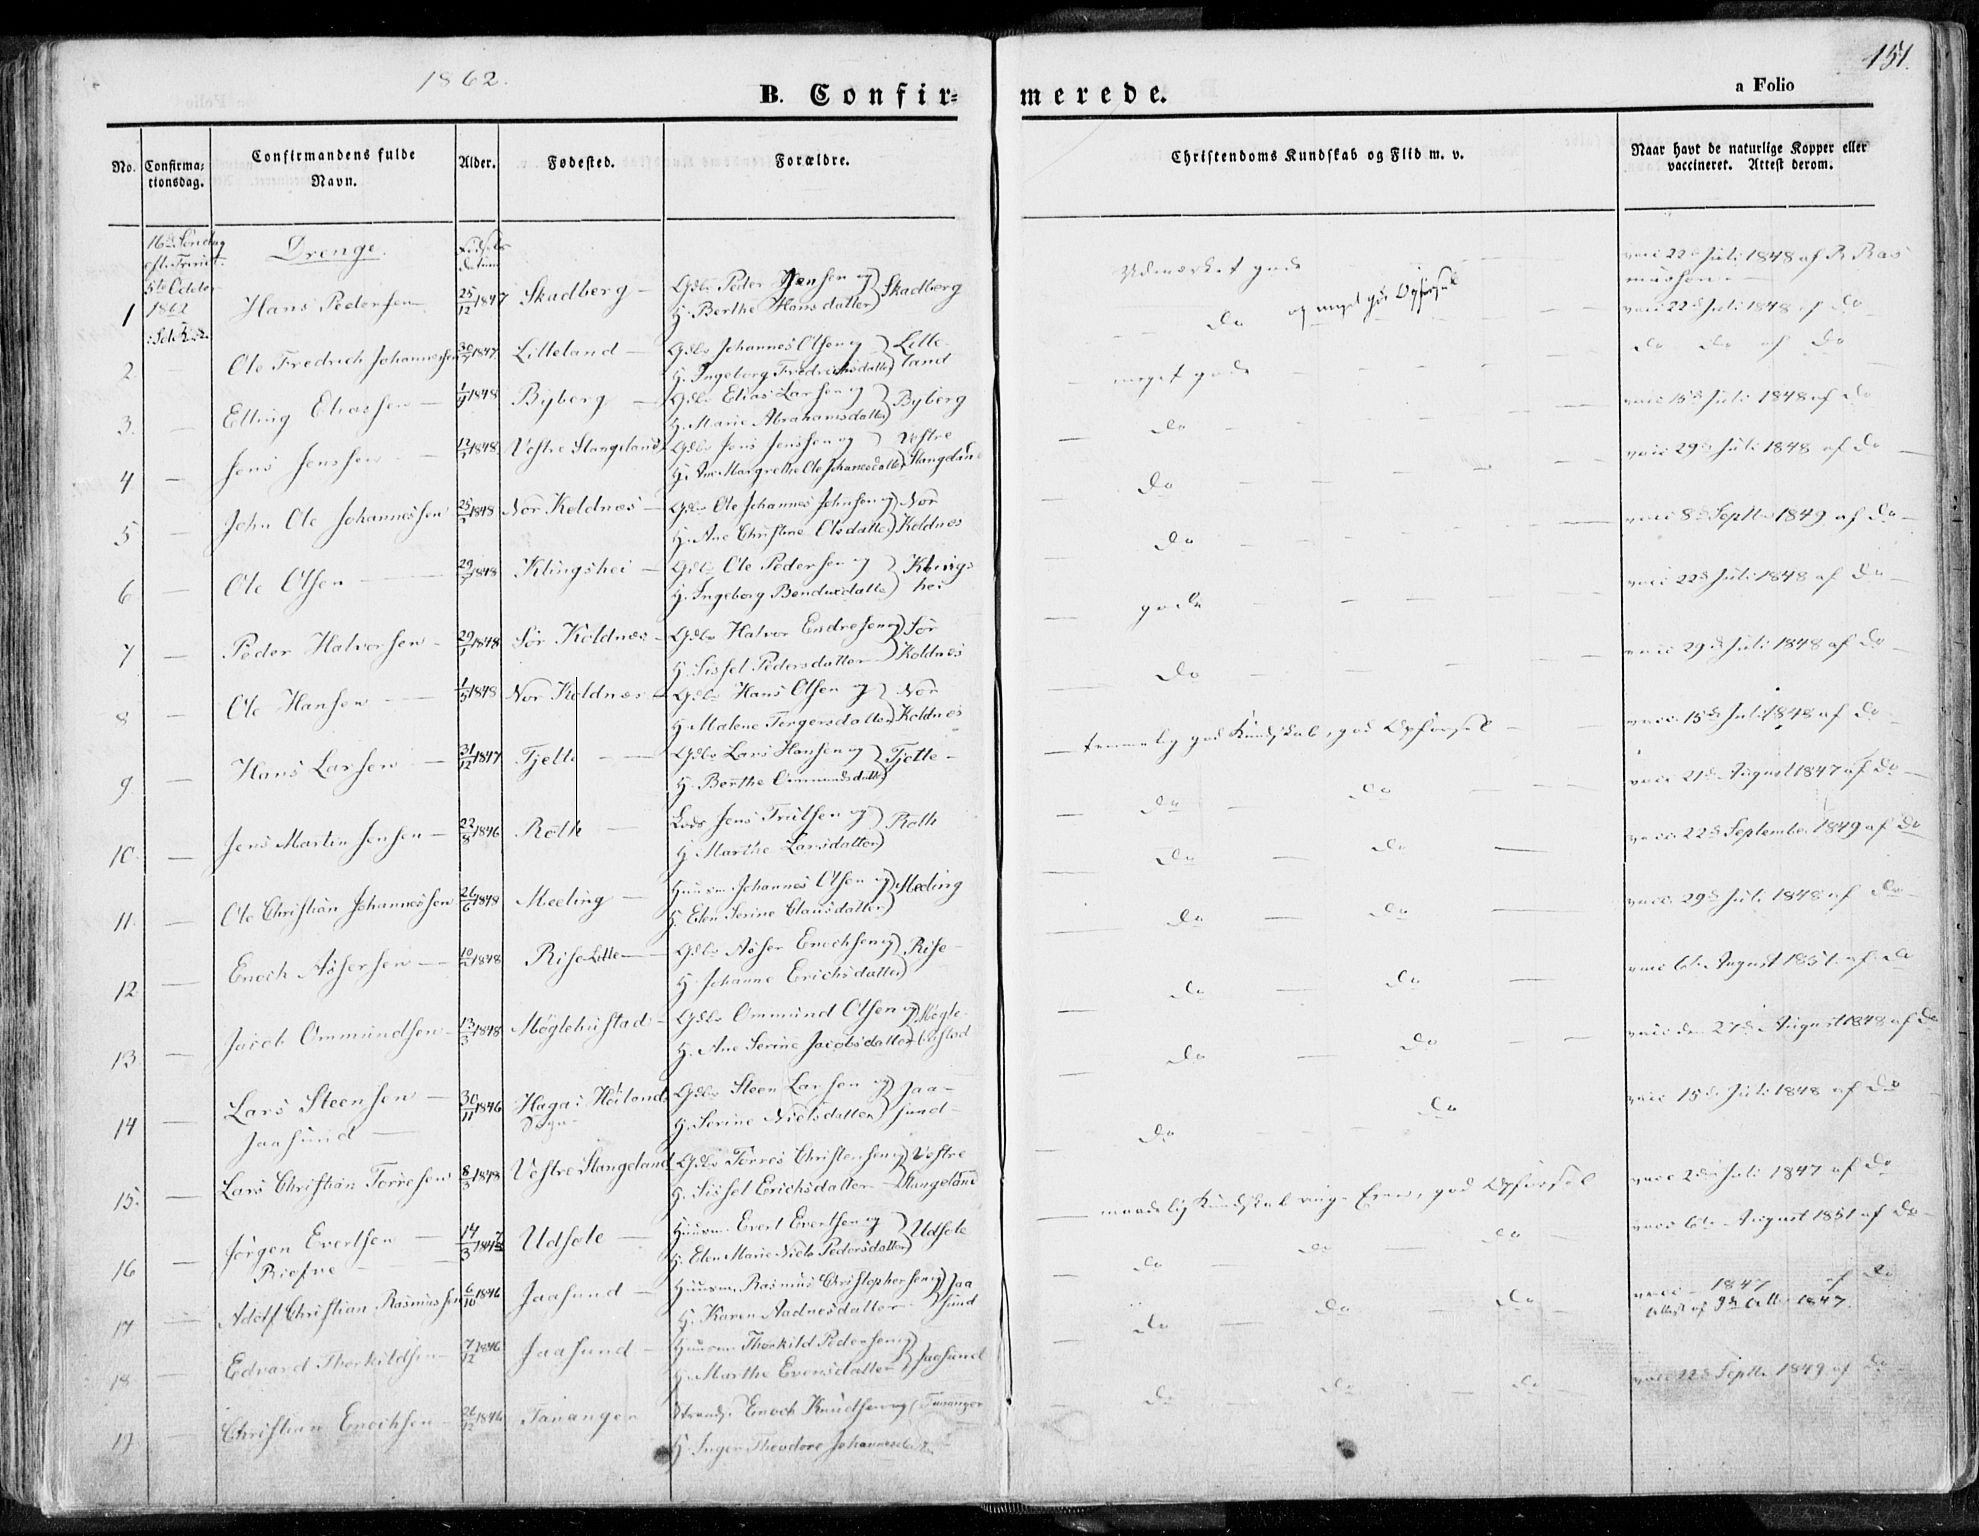 1862.
151.
B. Confir= merede.
a Folio
No.
Confirma= tionsdag.
Confirmandens fulde Navn.
Alder.
Fødested.
Forældre.
Christendoms Kundskab og Flid m. v.
Naar havt de naturlige Kopper eller vaccineret. Attest derom.
16de Søndag
eft. Trinit.
5te October
1862
Drenge.
1 Hans Pedersen 25/12 1847 Skadberg Gdbr Peder Hansen og H. Berthe Hansdatter Skadberg
Udmærket gode og meget god Opførsel
vacc 22de Juli 1848 af R. Rasmussen
2. Ole Fredrich Johannessen 1847 Lilleland Gdbr Johannes Olsen og H. Ingeborg Fredrichsdatter Lilleland
Do
vacc 22de Juli 1848 af Do
3. Elling Eliassen 1848 Byberg Gdbr Elias Larsen og H. Marie Abrahamsdatter Byberg
meget gode
Do Do af Do
4 Jens Jenssen 1848 Vestre Stangeland Gdbr Jens Jenssen og H. Ane Margrethe Ole Johanesdatter Vestre Stangeland
Do
vacc 15de Juli 1848 af Do
5 John Ole Johannessen 1848 Nor Koldnes Gdbr Ole Johannes Johnsen og H. Ane Christine Olsdatter Nor Koldnes
Do
vacc 29de Juli 1848 af Do
6 Ole Olsen 1848 Klingshei Gdbr Ole Pedersen og H. Ingeborg Bendixdatter Klingshei
Do
vacc 8de Septbr 1849 af Do
7 Peder Halvorsen 29/1 1848 Sør Koldnes Gdbr Halvor Endresen og H. Sissel Pedersdatter Sør Koldnes
gode
vacc 22de Juli 1848 af Do
8 Ole Hansen 1848 Nor Koldnes Gdbr Hans Olsen og H. Malene Tergersdatter Nor Koldnes
Do
vacc 29de Juli 1848 af Do
9 Hans Larsen 31/12 1847 Tjelte Gdbr Lars Hansen og H. Berthe Ommundsdatter Tjelte
temmelig god Kundskab, god Opførsel
vacc 15de Juli 1848 af Do
10. Jens Martin Jensen 22/8 1846 Roth Lods Jens Trulsen og H. Marthe Larsdatter Roth
Do Do
vacc 21de August 1847 af Do
11. Ole Christian Johannessen 26/6 1848 Meeling Huusm. Johannes Olsen og H. Elen Serine Clausdatter Meeling
Do Do
vacc 22de September 1849 af Do
12. Enoch Assersen 1848 Rise Lille Gdbr Asser Enochsen og H. Johanne Erichsdatter Rise
Do Do
vacc 29de Juli 1848 af Do
13 Jacob Ommundsen 13/3 1848 Møglebustad Gdbr Ommund Olsen og H. Ane Serine Jacobsdatter Møglebustad
Do Do
vacc 6te August 1851 af Do
14 Lars Steensen Jaasund 30/11 1846 Haga i Høilands Sogn Gdbr Steen Larsen og H. Serine Nielsdatter Jaasund
Do Do
vacc den 27de August 1848 af Do
15. Lars Christian Torresen 8/3 1848 Vestre Stangeland Gdbr Torres Christensen og H. Sissel Erichsdatter Vestre Stangeland
Do Do
vacc 15de Juli 1848 af Do
16 Jørgen Evertsen 14/3 1847 Udsole Huusm. Evert Evertsen og H. Elen Marie Niels Pedersdatter Udsole
maadelig Kundskab ringe Evne, god Opførsel
vacc 2den Juli 1847 af Do
17 Adolf Christian Rasmussen 6/10 1846 Jaasund Huusm. Rasmus Christophersen og H. Karen Aadnesdatter Jaasund
Do Do Do
vacc 6te August 1851 af Do
18 Edvard Thorkildsen 7/12 1846 Jaasund Huusm. Thorkild Pedersen og H. Marthe Evensdatter Jaasund
Do Do Do
vacc 1847 af Do
Attest af 9de Octbr 1847.
19 Christian Enochsen 26/12 1846 Tananger Strands. Enoch Knudsen og H. Inger Theodore Johannesdatter Tananger
Do Do Do
vacc 22de Septbr 1849 af Do